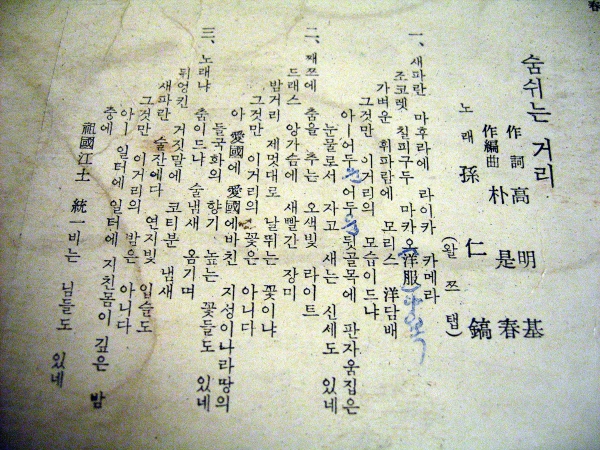 春
숨쉬는 거리
作詞 高明基
作編曲 朴是春
노래 孫仁鎬
(왈쯔탭)
一、새파란 마후라에 라이카 카메라
조코렛 칠피구두 마카오洋服
가벼운 휘파람에 모리스 洋담배
그것만 이거리의 모습이드냐
아—어두운어두운 뒷골목에 판자움집은
눈물로서 자고 새는 신세도 있네
二、째쯔에 춤을 추는 오색빛 라이트
드래스 앙가슴에 새빨간 장미
밤거리 제멋대로 날뛰는 꽃이냐
그것만 이거리의 꽃은 아니다
아 愛國에 愛國에바친 지성이나라땅의
들국화의 향기 높은 꽃들도 있네
三、노래냐 춤이드냐 술냄새 옴기며
뒤엉킨 거짓말에 코티분 냄새
새파란 술잔에다 연지빛 입술도
그것만 이거리의 밤은 아니다
아— 일터에 일터에 지친몸이 깊은 밤
중에
祖國江土 統一비는 님들도 있네